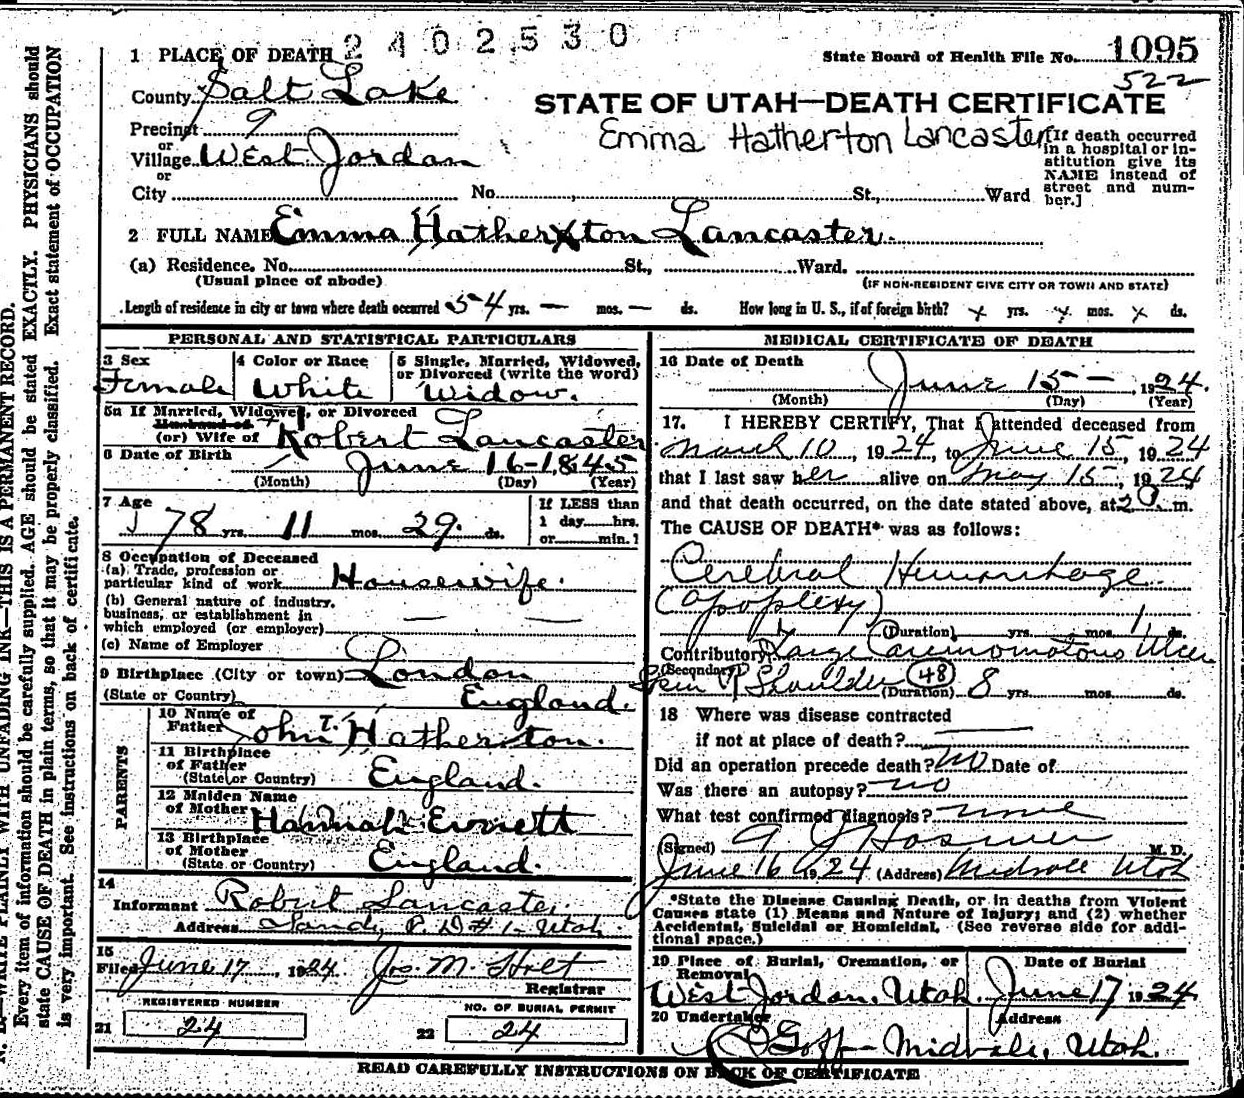 2402530
1 PLACE OF DEATH
State Board of Health File No. 1095
522
County Salt Lake
STATE OF UTAH—DEATH CERTIFICATE
Precinct 9
Emma Hatherton Lancaster
or
Village West Jordan
or
City No. St., Ward
[If death occurred
in a hospital or in-
stitution give its
NAME instead of
street and num-
ber.]
2 FULL NAME Emma Hatherton Lancaster.
(a) Residence. No. St., Ward.
(Usual place of abode) (IF NON-RESIDENT GIVE CITY OR TOWN AND STATE)
Length of residence in city or town where death occurred 54 yrs. — mos. — ds. How long in U. S., if of foreign birth? x yrs. x mos. x ds.
PERSONAL AND STATISTICAL PARTICULARS
3 Sex 4 Color or Race 5 Single, Married, Widowed,
or Divorced (write the word)
Female White Widow.
5a If Married, Widowed, or Divorced
Husband of
(or) Wife of Robert Lancaster
6 Date of Birth June 16-1845
(Month) (Day) (Year)
7 Age If LESS than
78 yrs. 11 mos. 29. ds. 1 day......hrs.
or......min.?
8 Occupation of Deceased
(a) Trade, profession or
particular kind of work Housewife.
(b) General nature of industry,
business, or establishment in
which employed (or employer) — —
(c) Name of Employer
9 Birthplace (City or town) London
(State or Country) England.
PARENTS
10 Name of
Father John T. Hatherton.
11 Birthplace
of Father
(State or Country) England.
12 Maiden Name
of Mother Hannah Everett
13 Birthplace
of Mother
(State or Country) England.
14
Informant Robert Lancaster.
Address Sandy, R. D #1- Utah.
15
Filed June 17, 1924 Jos. M. Holt
Registrar
REGISTERED NUMBER NO. OF BURIAL PERMIT
21 24 22 24
MEDICAL CERTIFICATE OF DEATH
16 Date of Death
June 15 — , 1924.
(Month) (Day) (Year)
17. I HEREBY CERTIFY, That I attended deceased from
March 10, 1924, to June 15, 1924
that I last saw her alive on May 15, 1924,
and that death occurred, on the date stated above, at 2 a.m.
The CAUSE OF DEATH* was as follows:
Cerebral Hemorrhage
(apoplexy)
(Duration) yrs. mos. 1 ds.
Contributory Large Carcinomatous Ulcer
(Secondary) Shoulder 48 (Duration) 8 yrs. mos. ds.
18 Where was disease contracted
if not at place of death? —
Did an operation precede death? no Date of
Was there an autopsy? no
What test confirmed diagnosis? none
(Signed) Hosmer M. D.
June 16 1924 (Address) Midvale Utah
*State the Disease Causing Death, or in deaths from Violent
Causes state (1) Means and Nature of Injury; and (2) whether
Accidental, Suicidal or Homicidal. (See reverse side for addi-
tional space.)
19 Place of Burial, Cremation, or Date of Burial
Removal
West Jordan, Utah. June 17 1924
20 Undertaker Address
Goff — Midvale, Utah.
READ CAREFULLY INSTRUCTIONS ON BACK OF CERTIFICATE
N. B.—WRITE PLAINLY WITH UNFADING INK—THIS IS A PERMANENT RECORD.
Every item of information should be carefully supplied. AGE should be stated EXACTLY. PHYSICIANS should
state CAUSE OF DEATH in plain terms, so that it may be properly classified. Exact statement of OCCUPATION
is very important. See instructions on back of certificate.